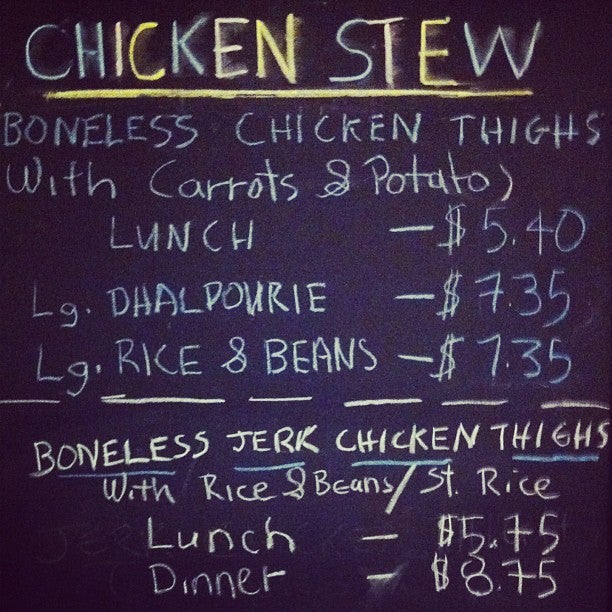 CHICKEN STEW
BONELESS CHICKEN THIGHS
With Carrots & Potato)
LUNCH — $5.40
Lg. DHALPOURIE — $7.35
Lg. RICE & BEANS — $7.35
BONELESS JERK CHICKEN THIGHS
With Rice & Beans/St. Rice
Lunch — $5.75
Dinner — $8.75